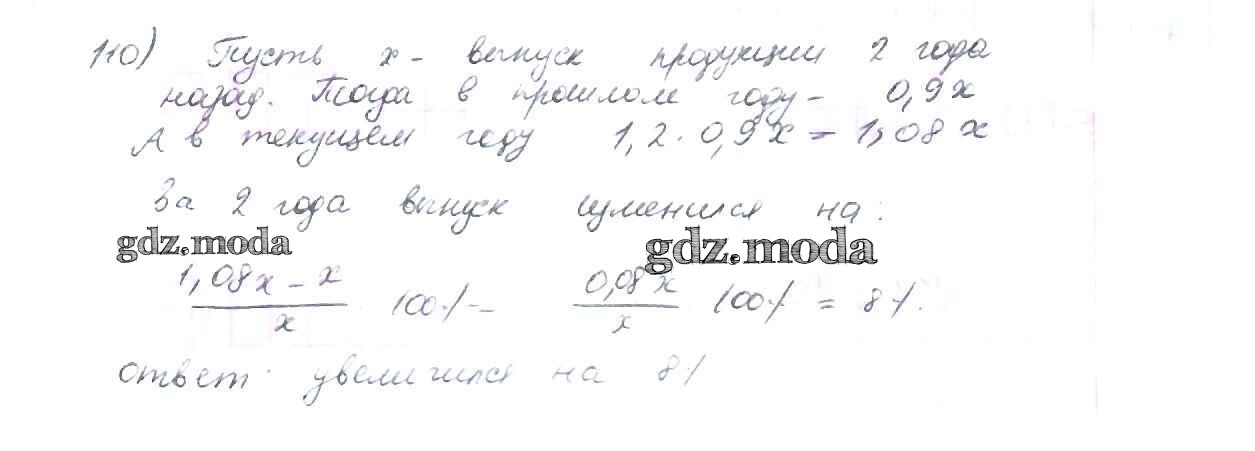 110) Пусть x - выпуск продукции 2 года
назад. Тогда в прошлом году - 0,9x
А в текущем году 1,2 · 0,9x = 1,08x
За 2 года выпуск изменился на:
gdz.moda gdz.moda
(1,08x - x)/x 100% = 0,08x/x 100% = 8%.
ответ: увеличился на 8%